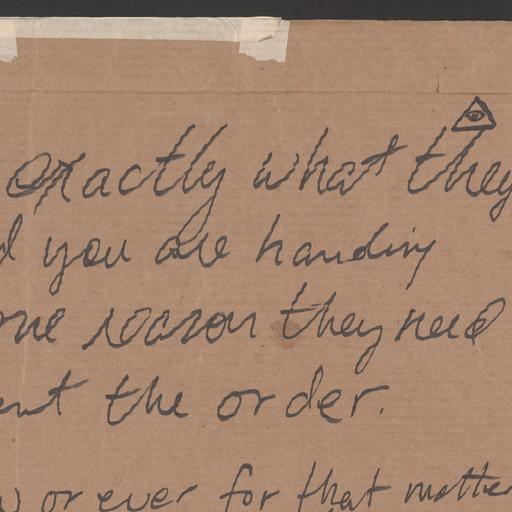 exactly what they
d you are handing
one reason they need
ent the order.
w or ever for that matter